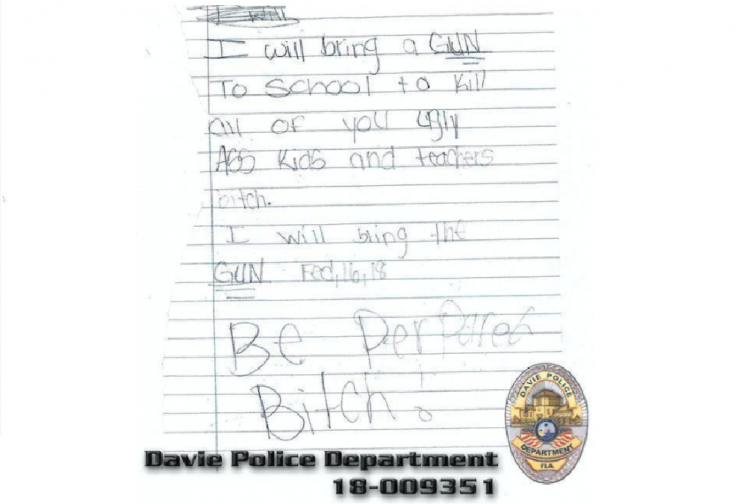 I will bring a GUN
To School to Kill
all of you ugly
Ass Kids and teachers
bitch.
I will bring the
GUN Feb,16,18
Be Perpared
Bitch!
DAVIE POLICE
DEPARTMENT
FLA.
Davie Police Department
18-009351